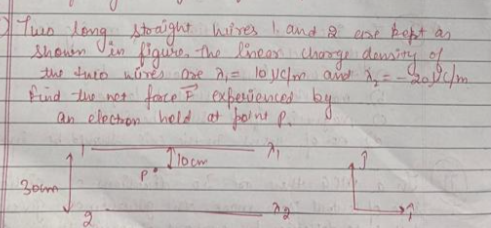 Two long straight wires 1 and 2 are kept as
shown in figure. The linear charge density of
the two wires are λ₁ = 10 μc/m and λ₂ = -20 μc/m
find the net force F⃗ experienced by
an electron held at point P.
1 λ₁
10cm
P
30cm
2 λ₂
ĵ
î